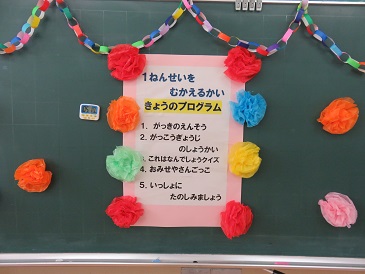 1ねんせいを
むかえるかい
きょうのプログラム
1. がっきのえんそう
2. がっこうぎょうじ
のしょうかい
3. これはなんでしょうクイズ
4. おみせやさんごっこ
5. いっしょに
たのしみましょう